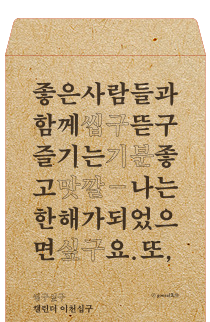 좋은사람들과
함께씹구뜯구
즐기는기분좋
고맛깔－나는
한해가되었으
면싶구요.또,
캘린더 이천십구